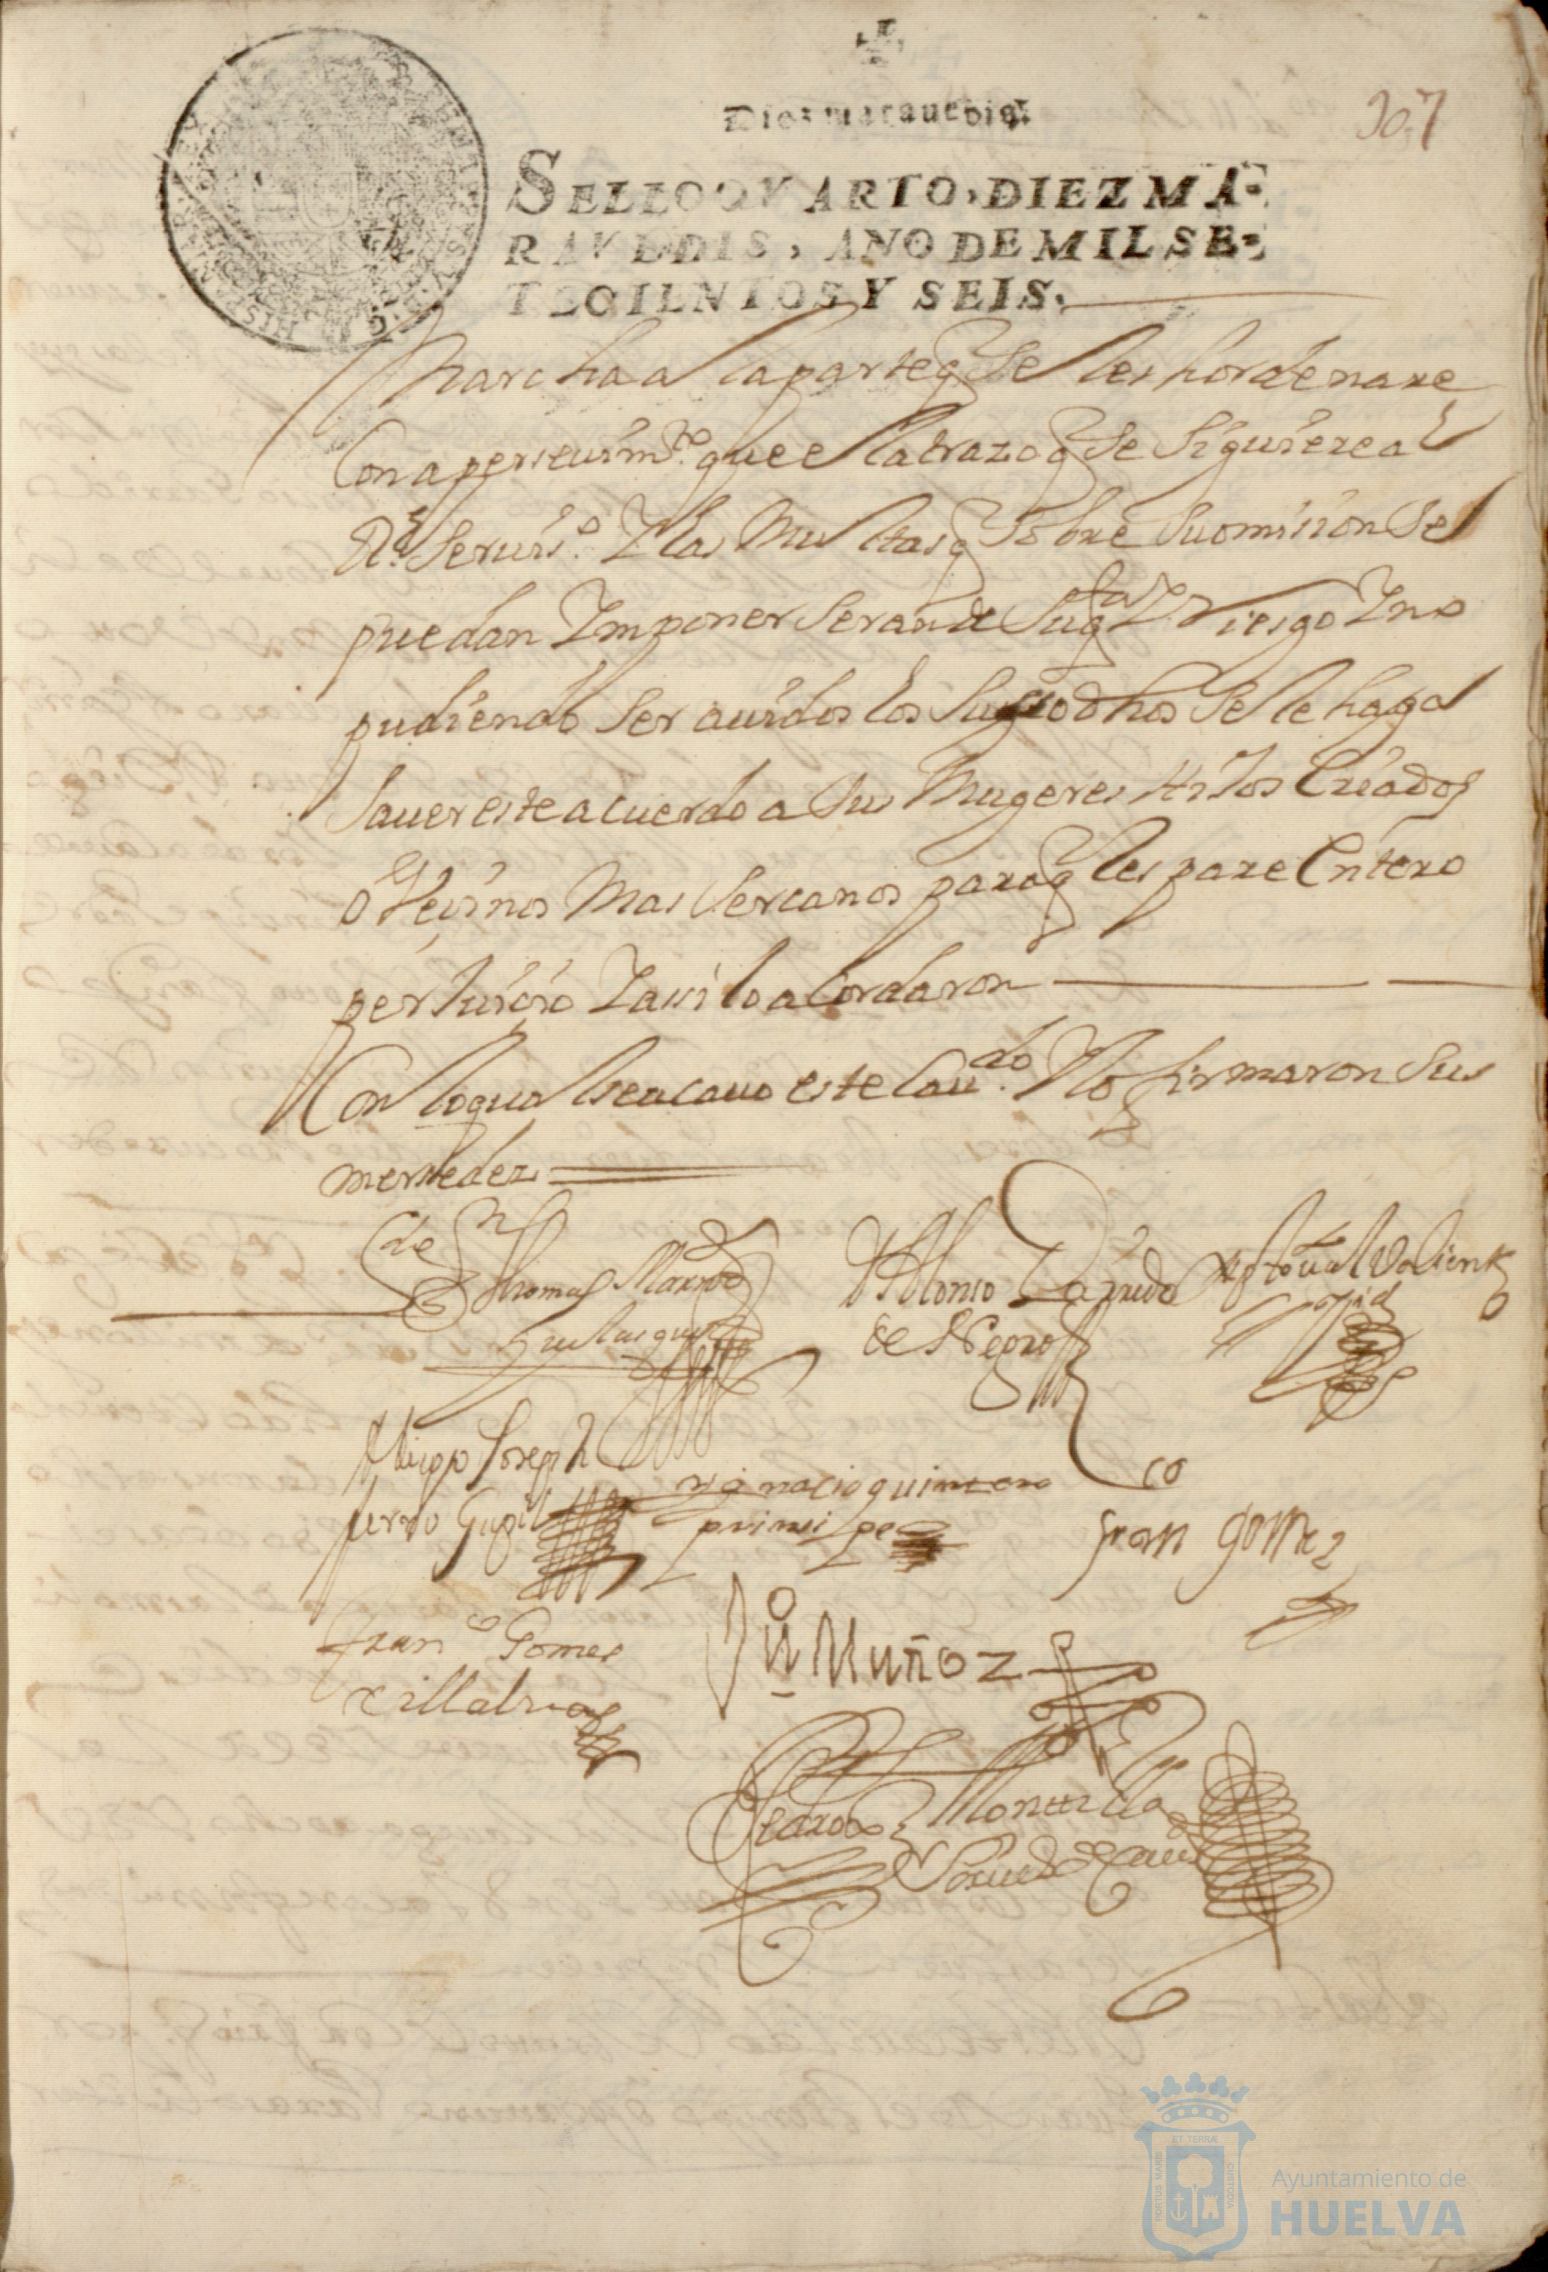 Diez marauedis.
307
SELLO QVARTO, DIEZ MA-
RAVEDIS, AÑO DE MIL SE-
TECIENTOS Y SEIS.
Marcha a la parte q Se les hordenare
Con aperseuim.to que el atrazo q Se Siguiere al
R.l Seruis.o Y las Multas q Sobre Su omision Se
puedan Ymponer Seran de Su q.ta Y Riesgo Y no
pudiendo Ser auidos los Susodhos Se le haga
Sauer este acuerdo a Sus Mugeres Hijos Criados
o Vecinos Mas Sercanos para q les pare Entero
perJuicio Y assi lo aCordaron
Con lo qual se acauo este Cau.do Y lo firmaron Sus
mersedez
Thomas
D Alonso
de Negro
xptoual Valiente
Diego Joseph
ygnacio quintero
prinsipe
fran.co gomez
Fran.co Gomes
Villalua
Ju.o Muñoz
Pedro
Montilla
ET TERRÆ
PORTUS MARIS
CUSTODIA
Ayuntamiento de
HUELVA